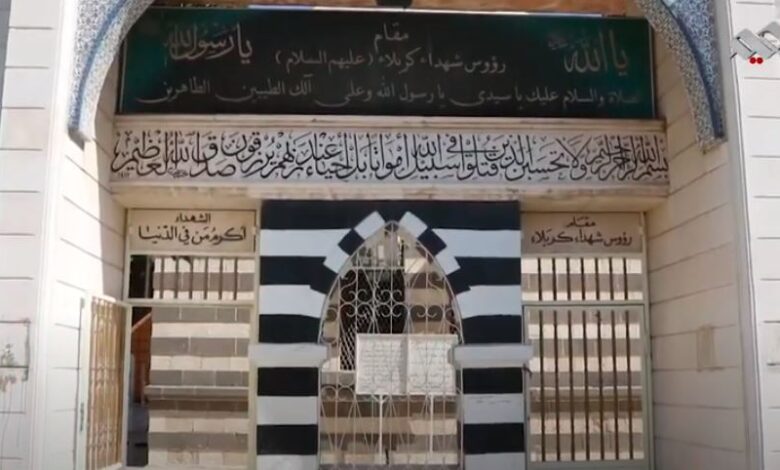 يا الله
مقام
رؤوس شهداء كربلاء (عليهم السلام)
يا رسول الله
الصلاة والسلام عليك يا سيدي يا رسول الله وعلى آلك الطيبين الطاهرين
بسم الله الرحمن الرحيم ولا تحسبن الذين قتلوا في سبيل الله أمواتا بل أحياء عند ربهم يرزقون صدق الله العظيم
مقام
رؤوس شهداء كربلاء
الشهداء
أكرم من في الدنيا